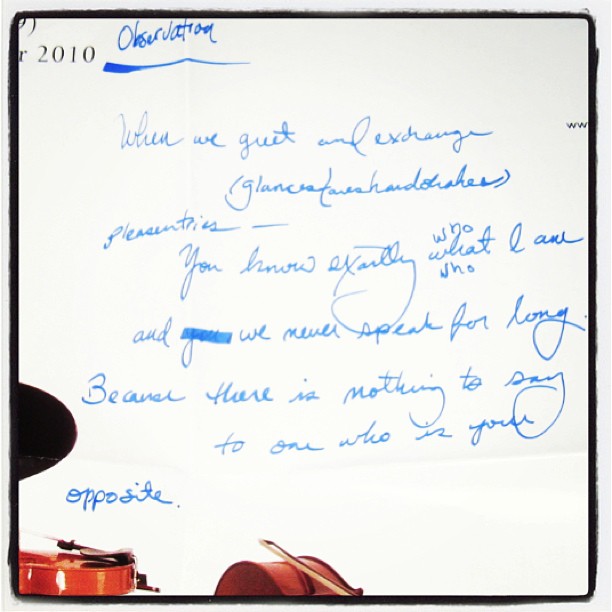 Observation
r 2010
When we greet and exchange
ww
(glances handshakes)
pleasentries —
who
You know exactly what I am
who
and we never speak for long.
Because there is nothing to say
to one who is your
opposite.